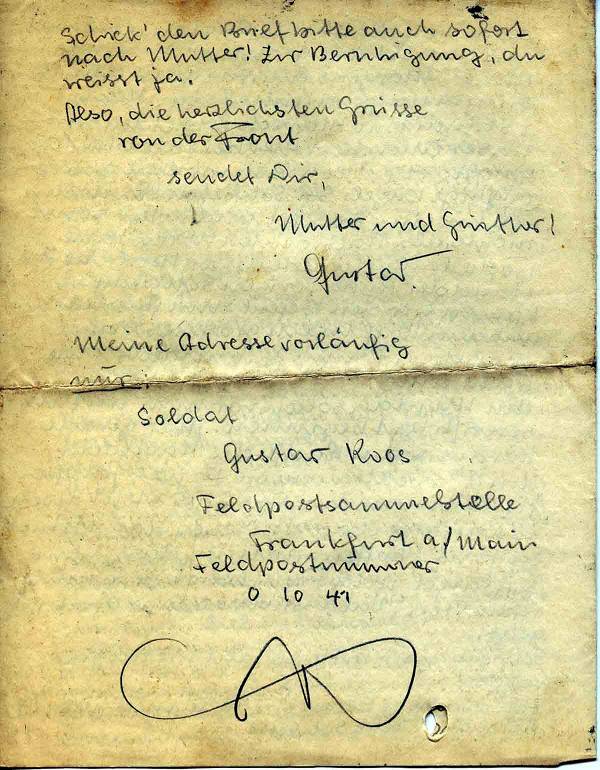 Schick' den Brief bitte auch sofort
nach Mutter! Zur Beruhigung, du
weisst ja.
Also, die herzlichsten Grüsse
von der Front
sendet Dir,
Mutter und Günther!
Gustav.
Meine Adresse vorläufig
nur:
Soldat
Gustav Koos
Feldpostsammelstelle
Frankfurt a/Main
Feldpostnummer
0 10 41